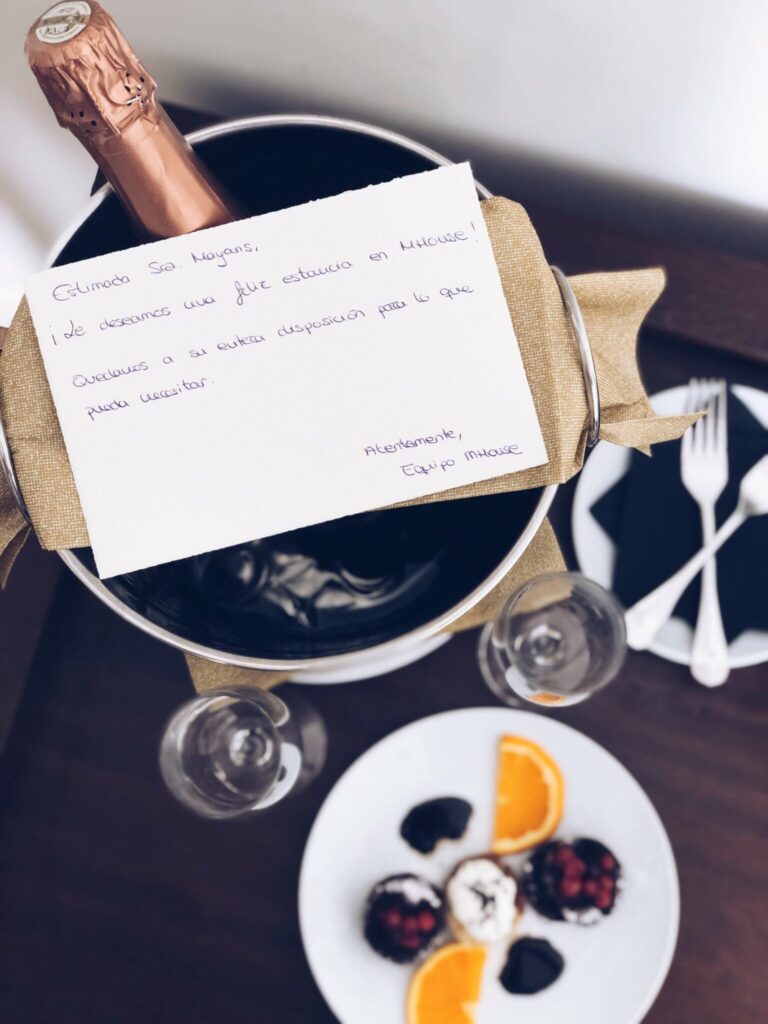 Estimada Sra. Mayans,
¡Le deseamos una feliz estancia en MHouse!
Quedamos a su entera disposición para lo que
pueda necesitar.
Atentamente,
Equipo MHouse